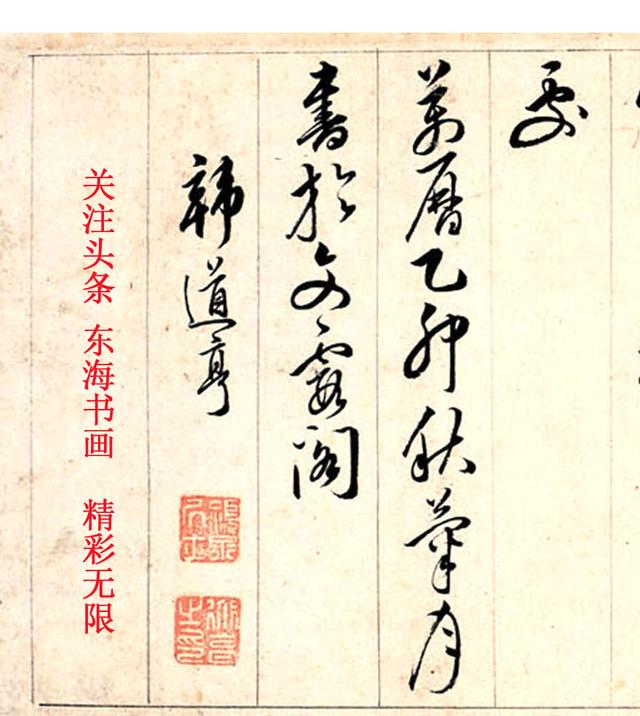 萬曆乙卯秋菊月
書於文霞閣
韓道亨
关注头条 东海书画 精彩无限